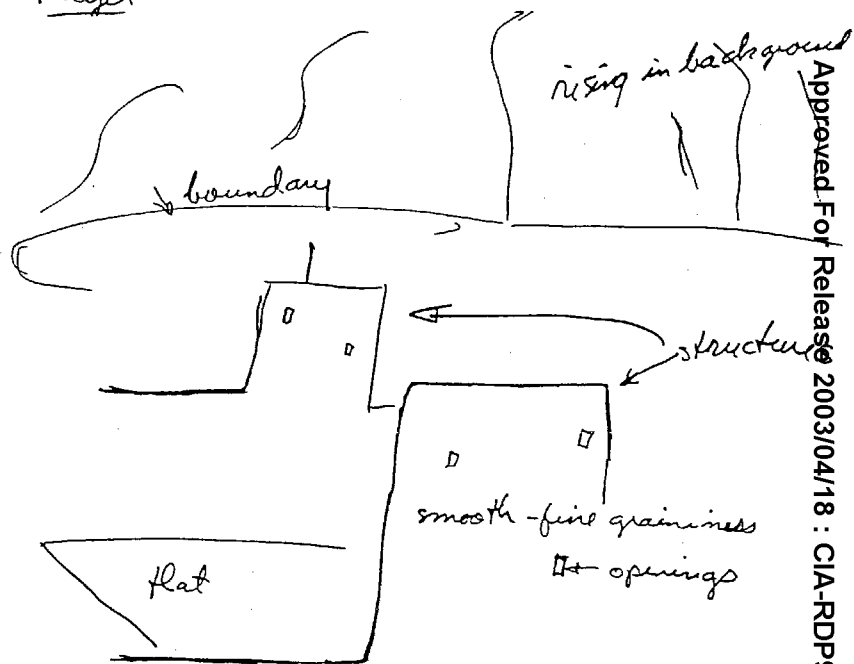 rising in background
boundary
structure
smooth - fine graininess
openings
flat
Approved For Release 2003/04/18 : CIA-RDP9